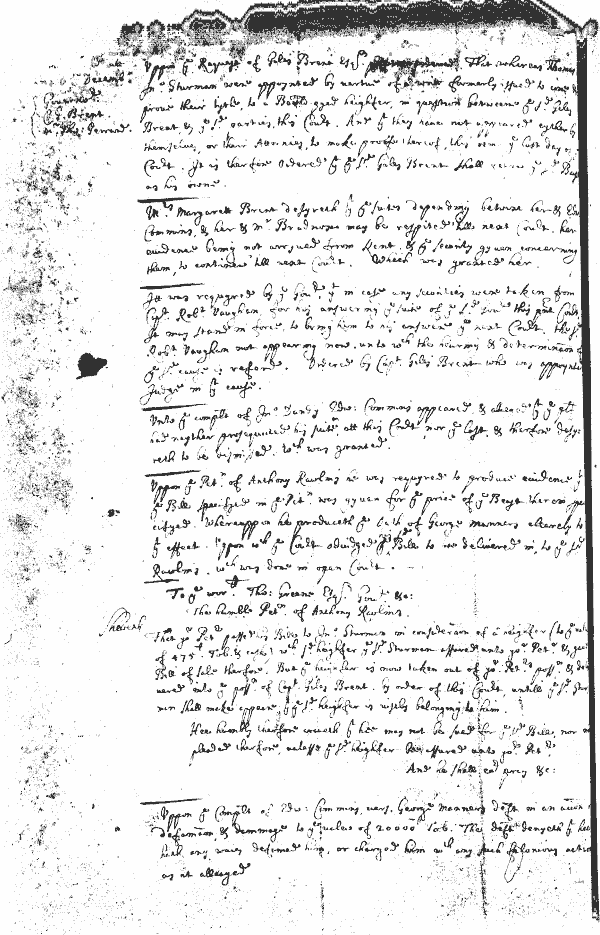 Uppon ye Request of Giles Brent Esqr. That whereas Thomas
Jno. Sturman were appoynted by vertue of a writt formerly issued to come &
prove their tytle to a Beast, a red heighfer, in question betweene ye sd. Giles
Brent & ye sd. parties, this Court. And yt they have not appeared eyther by
themselves, or their Attornies, to make proofe thereof, this being ye last day of
Court. It is therfore Ordered yt ye sd. Giles Brent shall ye sd. Beast
as his owne.
Mrs. Margarett Brent desyreth yt ye suites depending betwixt her & Edw
Commins, & her & Mr. Bradnox may be respited till next Court. her
evidence being not arryved from Kent, & ye security gyven concerning
them, to continue till next Court. Which was granted her
It was requyred by ye Govr. yt in case any securities were taken from
Capt. Robt. Vaughan, for his answering ye suite of ye sd. this pnt Court,
It may stand in force, to bring him to his answere ye next Court, the sd.
Robt. Vaughan not appearing now, unto wch the hearing & determinacon of
ye sd. cause is referred. Ordered by Capt. Giles Brent who was appoynted
Judge in yt cause.
Unto ye complt of Jno. Dandy Edw: Commins appeared, & alleaged yt ye plt.
had neyther prosequuted his suite att this Court nor ye last, & therfore desy-
reth to be dismissed. wch was granted.
Uppon ye Petn. of Anthony Rawlins he was requyred to produce evidence yt
ye Bill specifyed in ye Petn. was gyven for ye price of ye Beast therein spe
cifyed. Whereuppon he produceth ye Oath of George Manners clearely to
yt effect. Uppon wch ye Court adiudged ye Bill to be delivered in, to ye sd.
Rawlins. wch was done in open Court.
To ye worll. Tho: Greene Esqr. Govr. &c:
The humble Petn. of Anthony Rawlins.
Sheweth
That yor. Petr. passed his Bills to Jno. Sturman in consideracon of a heighfer (to ye value
of 475l. Tob. & caske) wch sd. heighfer ye sd. Sturman assured unto yor. Petr. &
Bill of Sale therfore. But ye heighfer is now taken out of yor. Petrs. possn. & deli
vered into ye possn. of Capt. Giles Brent. by order of this Court, untill ye sd. Stur
man shall make appeare, yt ye sd. heighfer is iustly belonging to him.
Hee humbly therfore craveth yt hee may not be sued for ye sd. Bills, nor
pleaded therfore, unlesse ye sd. heighfer be assured unto yor. Petr.
And he shall ever pray &c:
Uppon ye Complt. of Edw: Commins, vers. George Manners deft. in an accon of
defamacon, & dammage to ye value of 20000l Tob. The deft. denyeth yt hee
hath any wayes defamed him, or charged him wth any such felonious action
as is alleaged